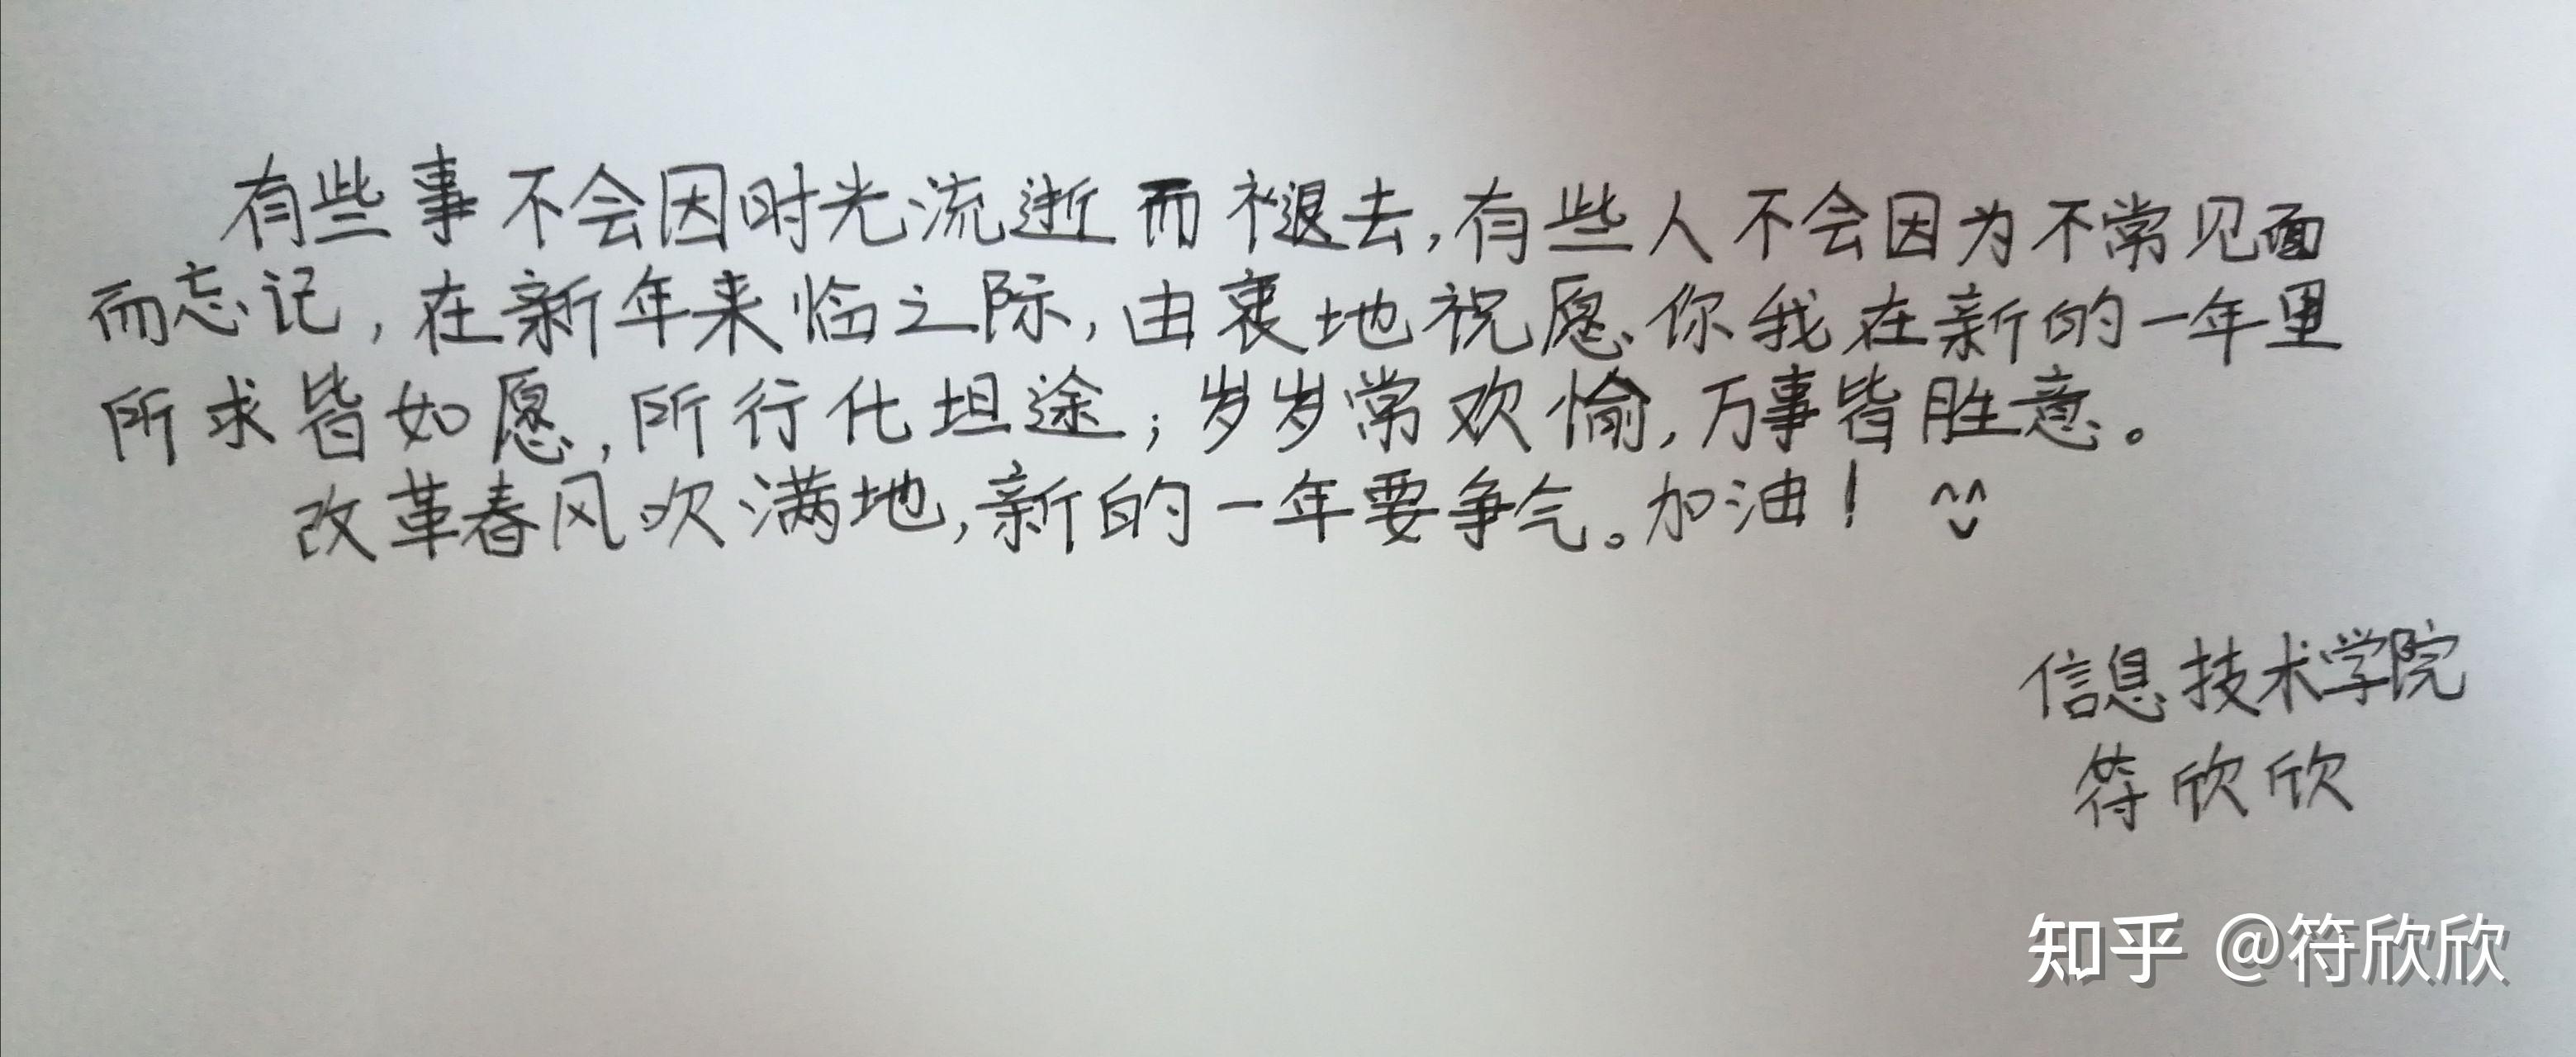 有些事不会因时光流逝而褪去,有些人不会因为不常见面
而忘记,在新年来临之际,由衷地祝愿你我在新的一年里
所求皆如愿,所行化坦途;岁岁常欢愉,万事皆胜意。
改革春风吹满地,新的一年要争气。加油! ^^
信息技术学院
符欣欣
知乎 @符欣欣